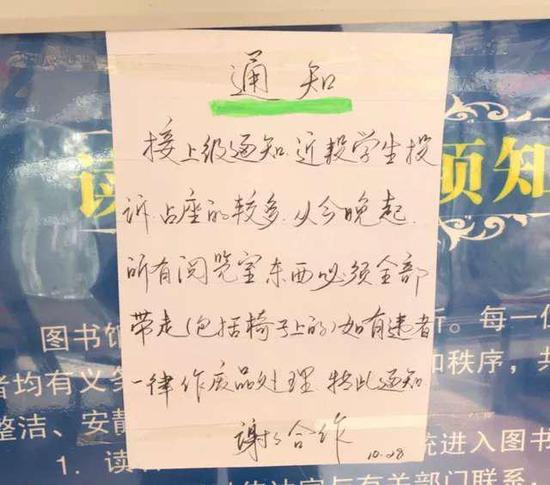 通知
接上级通知.近段学生投
诉占座的较多.从今晚起.
所有阅览室东西必须全部
带走(包括椅子上的)如有违者
一律作废品处理 特此通知
谢々合作
10.28
读 须知
图书馆 所。每一
者均有义务 和秩序，共
整洁、安静 统进入图书
1. 读
与有关部门联系